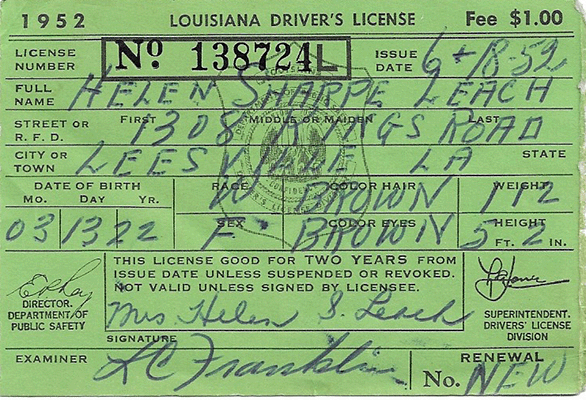 1952 LOUISIANA DRIVER'S LICENSE Fee $1.00
LICENSE NUMBER No. 138724L ISSUE DATE 6-18-52
FULL NAME HELEN SHARPE LEACH
FIRST MIDDLE OR MAIDEN LAST
STREET OR R.F.D. 1308 KINGS ROAD
CITY OR TOWN LEESVILLE LA STATE
DATE OF BIRTH RACE COLOR HAIR WEIGHT
Mo. Day Yr. W BROWN 112
SEX COLOR EYES HEIGHT
03 13 22 F BROWN 5 FT. 2 IN.
THIS LICENSE GOOD FOR TWO YEARS FROM
ISSUE DATE UNLESS SUSPENDED OR REVOKED.
NOT VALID UNLESS SIGNED BY LICENSEE.
DIRECTOR. DEPARTMENT OF PUBLIC SAFETY
Mrs Helen S. Leach
SIGNATURE
SUPERINTENDENT. DRIVERS' LICENSE DIVISION
EXAMINER LC Franklin
RENEWAL
No. NEW